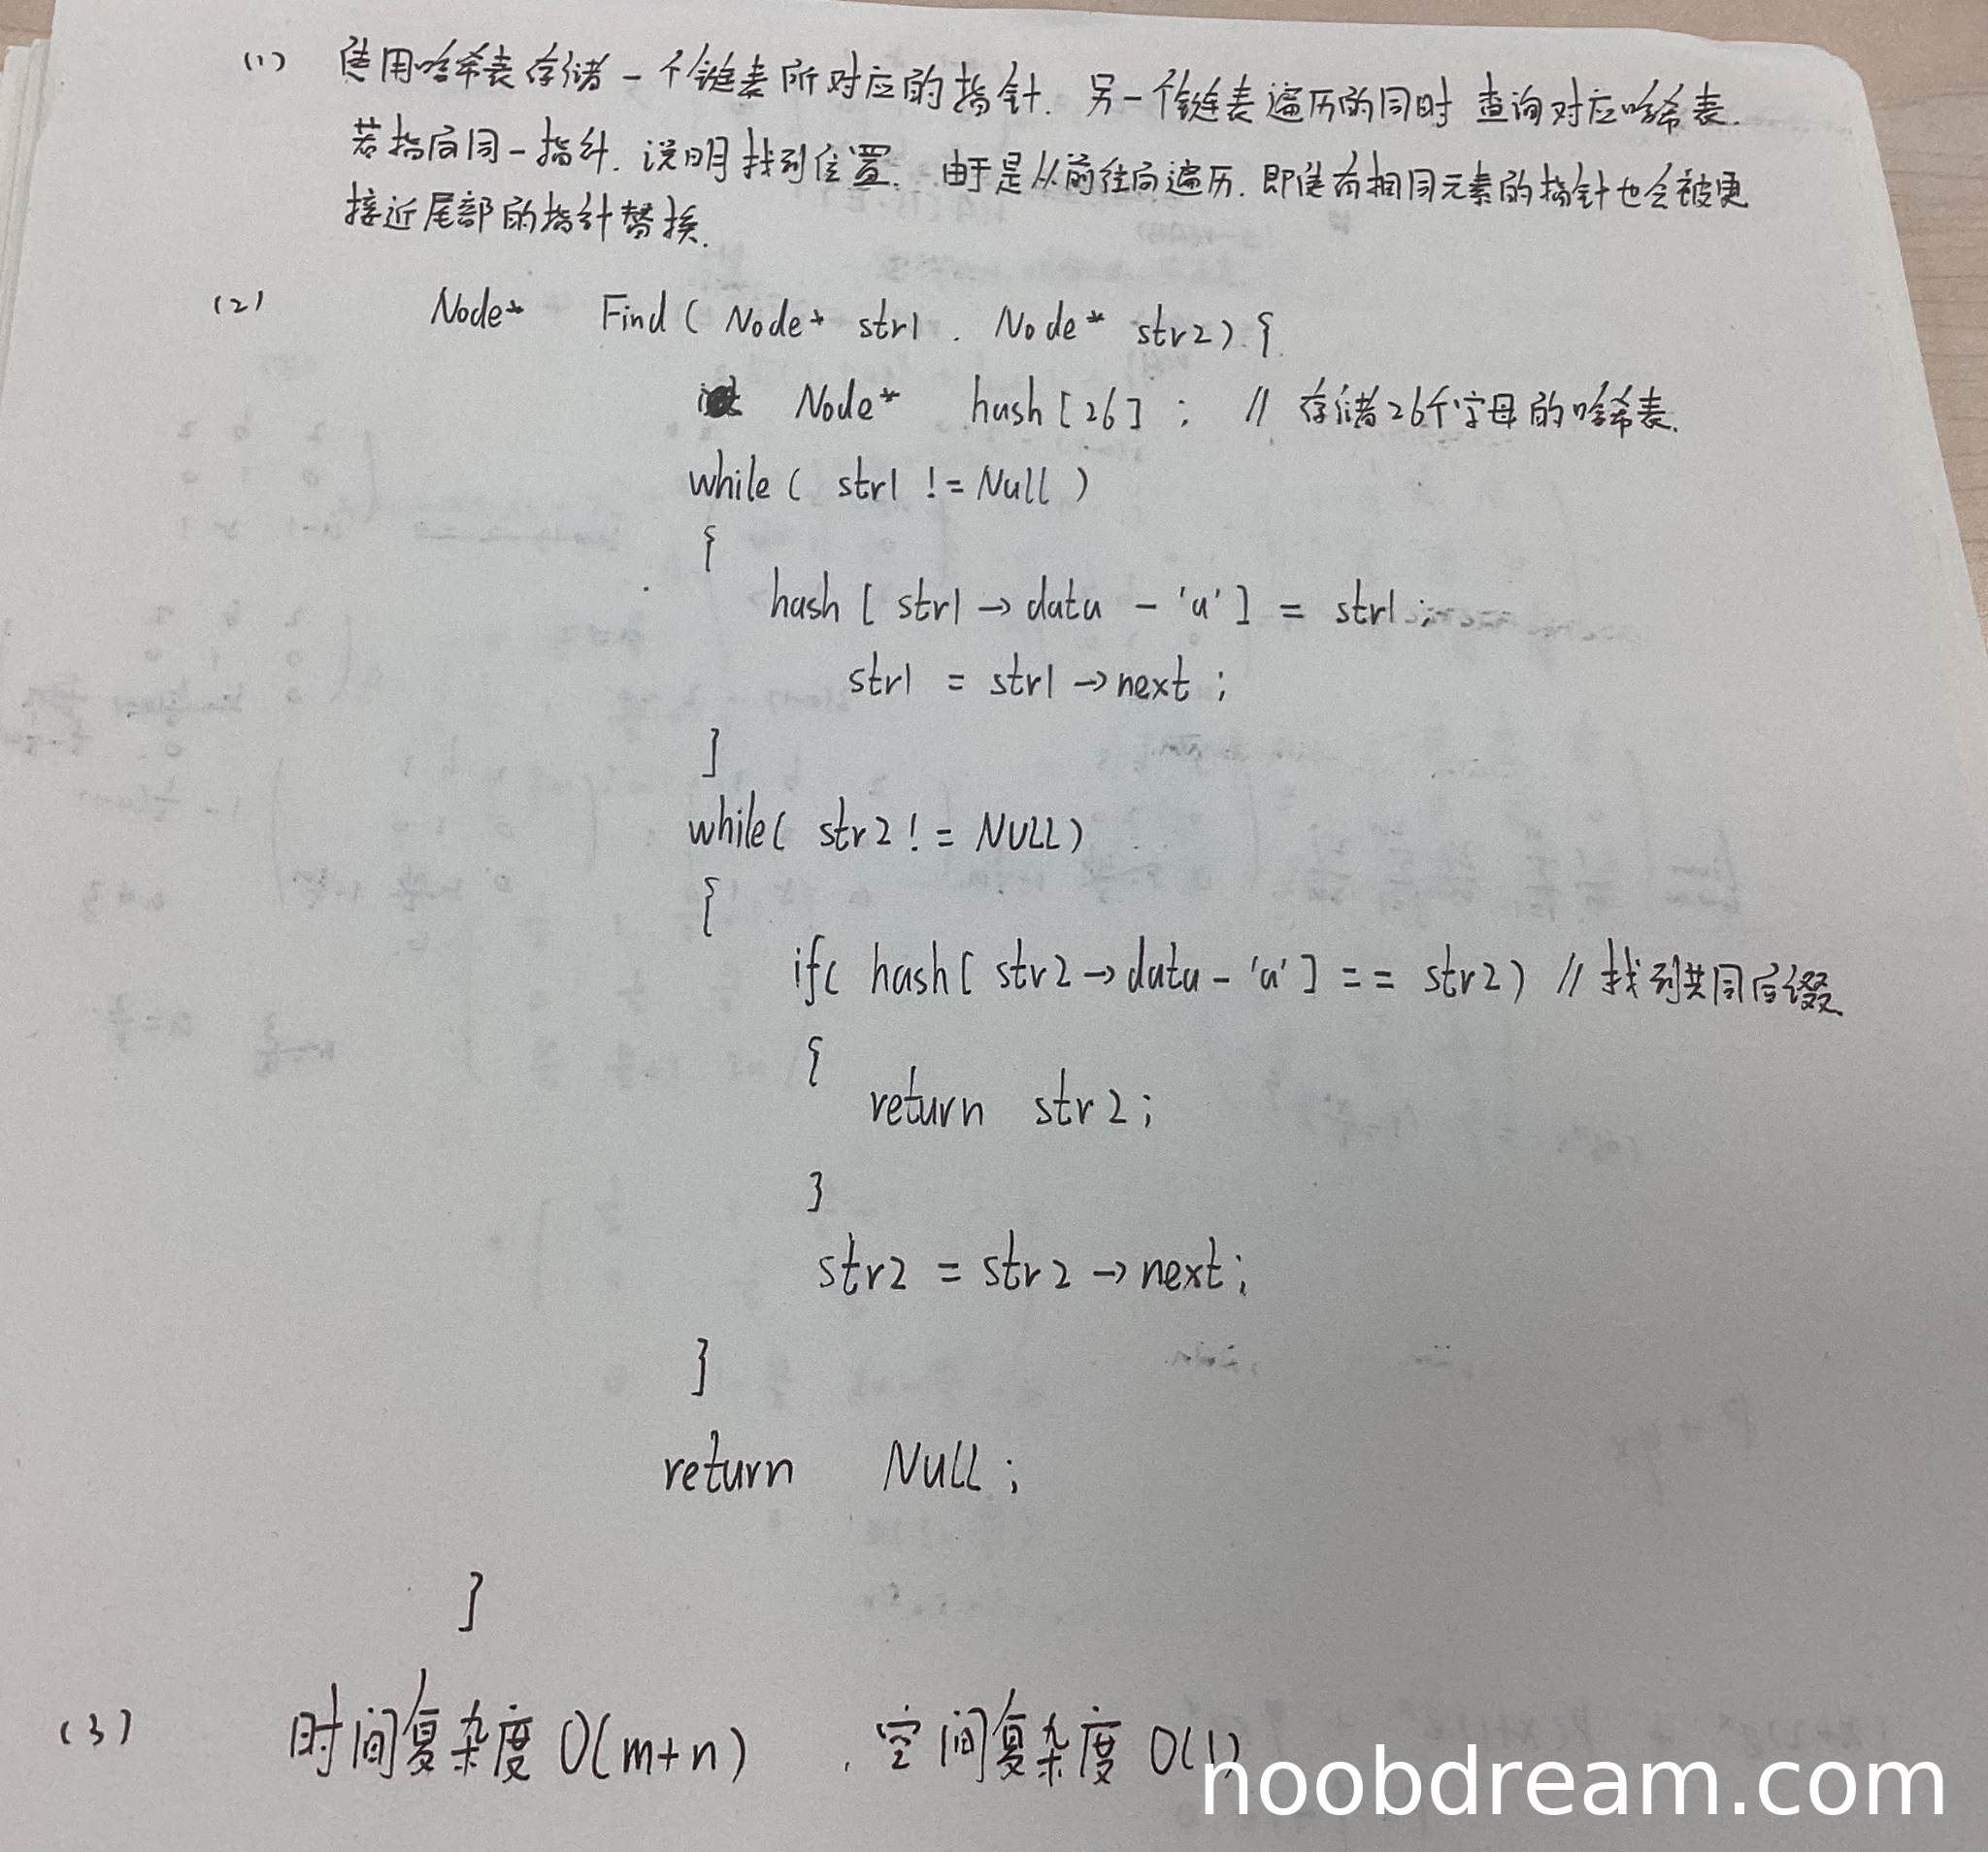 (1) 使用哈希表存储一个链表所对应的指针. 另一个链表遍历的同时 查询对应哈希表.
若指向同一指针. 说明找到位置. 由于是从前往向遍历. 即使有相同元素的指针也会被更
接近尾部的指针替换.
(2) Node* Find( Node* str1 . Node* str2) {
Node* hash[26] ; // 存储26个字母的哈希表.
while( str1 != Null )
{
hash[ str1→data - 'a' ] = str1;
str1 = str1→next ;
}
while( str2 != NULL)
{
if( hash[ str2→data - 'a' ] == str2) // 找到共同后缀
{
return str2;
}
str2 = str2→next;
}
return NULL ;
}
(3) 时间复杂度 O(m+n) . 空间复杂度 O(1)
noobdream.com